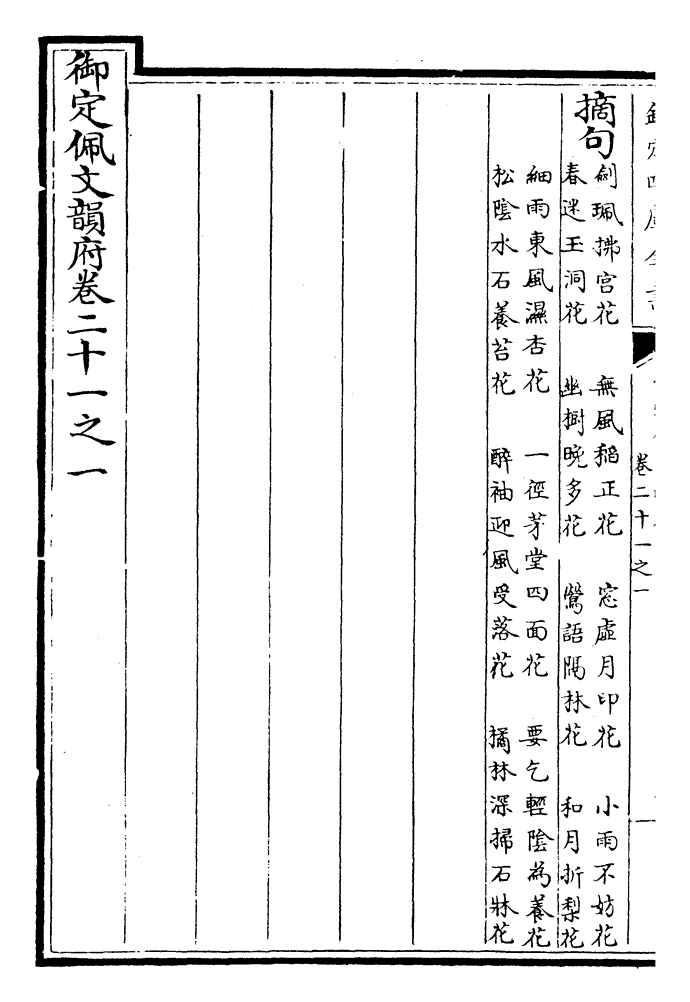 摘句
劍珮拂宮花 無風稻正花 窓虛月印花 小雨不妨花
春迷玉洞花 幽樹晩多花 鶯語隔林花 和月折梨花
細雨東風濕杏花 一徑茅堂四面花 要乞輕陰為養花
松陰水石養苔花 醉袖迎風受落花 橘林深掃石牀花
御定佩文韻府卷二十一之一
卷二十一之一